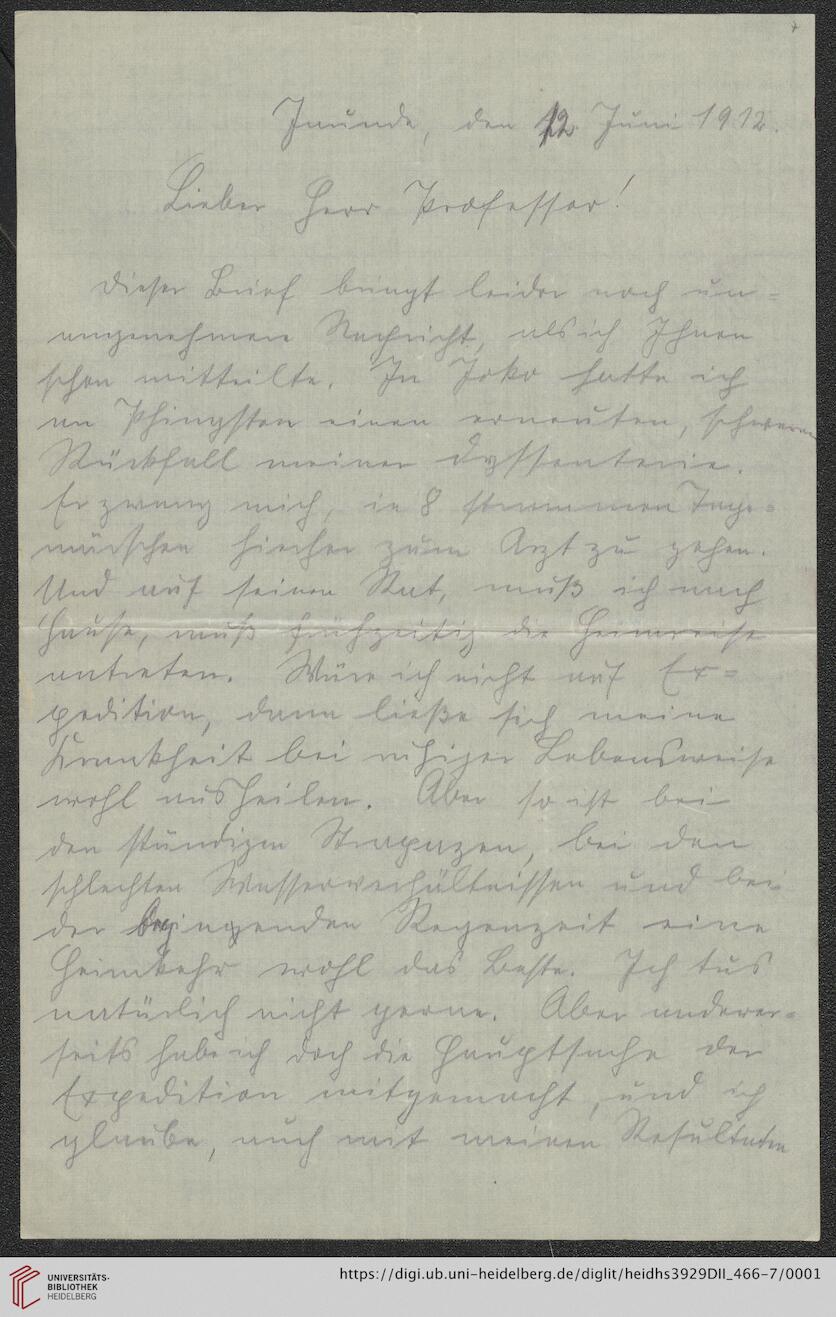 Jaunde, den 12. Juni 1912.
Lieber Herr Professor!
Dieser Brief bringt leider noch un-
angenehmere Nachricht, als ich Ihnen
schon mitteilte. In Joko hatte ich
an Pfingsten einen erneuten, schweren
Rückfall meiner Dyssenterie.
Er zwang mich, in 8 strammen Tage-
märschen hierher zum Arzt zu gehen.
Und auf seinen Rat, muß ich nach
Hause, muß frühzeitig die Heimreise
antreten. Wäre ich nicht auf Ex-
pedition, dann ließe sich meine
Krankheit bei ruhiger Lebensweise
wohl ausheilen. Aber so ist bei
den ständigen Strapazen, bei den
schlechten Wasserverhältnissen und bei
der Regenzeit eine
Heimkehr wohl das Beste. Ich tus
natürlich nicht gerne. Aber anderer-
seits habe ich doch die Hauptsache der
Expedition mitgemacht, und ich
glaube, auch mit meinen Resultaten
UNIVERSITÄTS-
BIBLIOTHEK
HEIDELBERG
https://digi.ub.uni-heidelberg.de/diglit/heidhs3929DII_466-7/0001